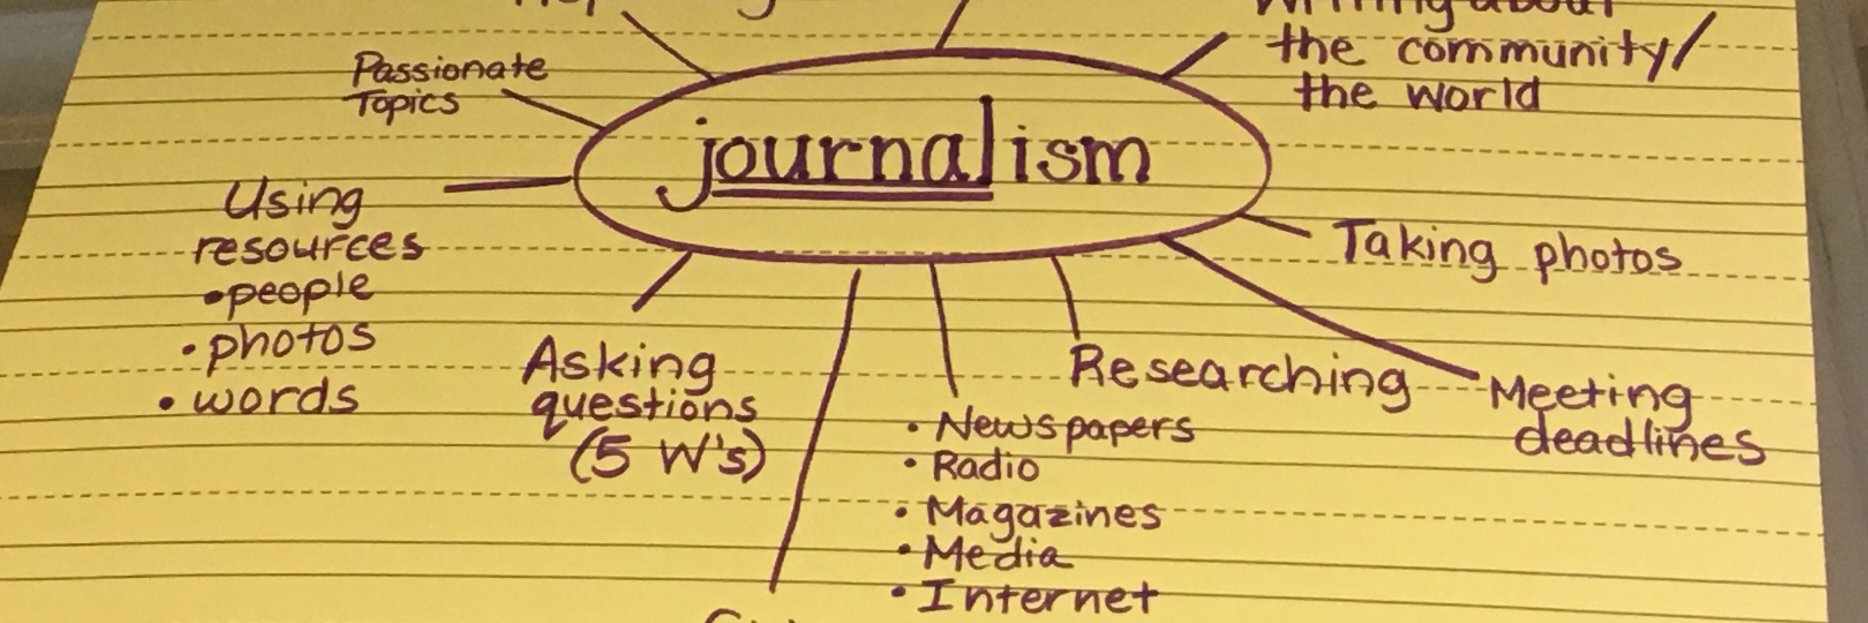 Writing about
the community/
the world
Passionate
Topics
journalism
Using
resources
•people
•photos
•words
Taking photos
Asking
questions
(5 W's)
Researching
Meeting
deadlines
•Newspapers
•Radio
•Magazines
•Media
•Internet